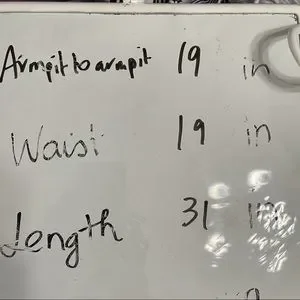 Armpit to armpit 19 in
Waist 19 in
Length 31 in